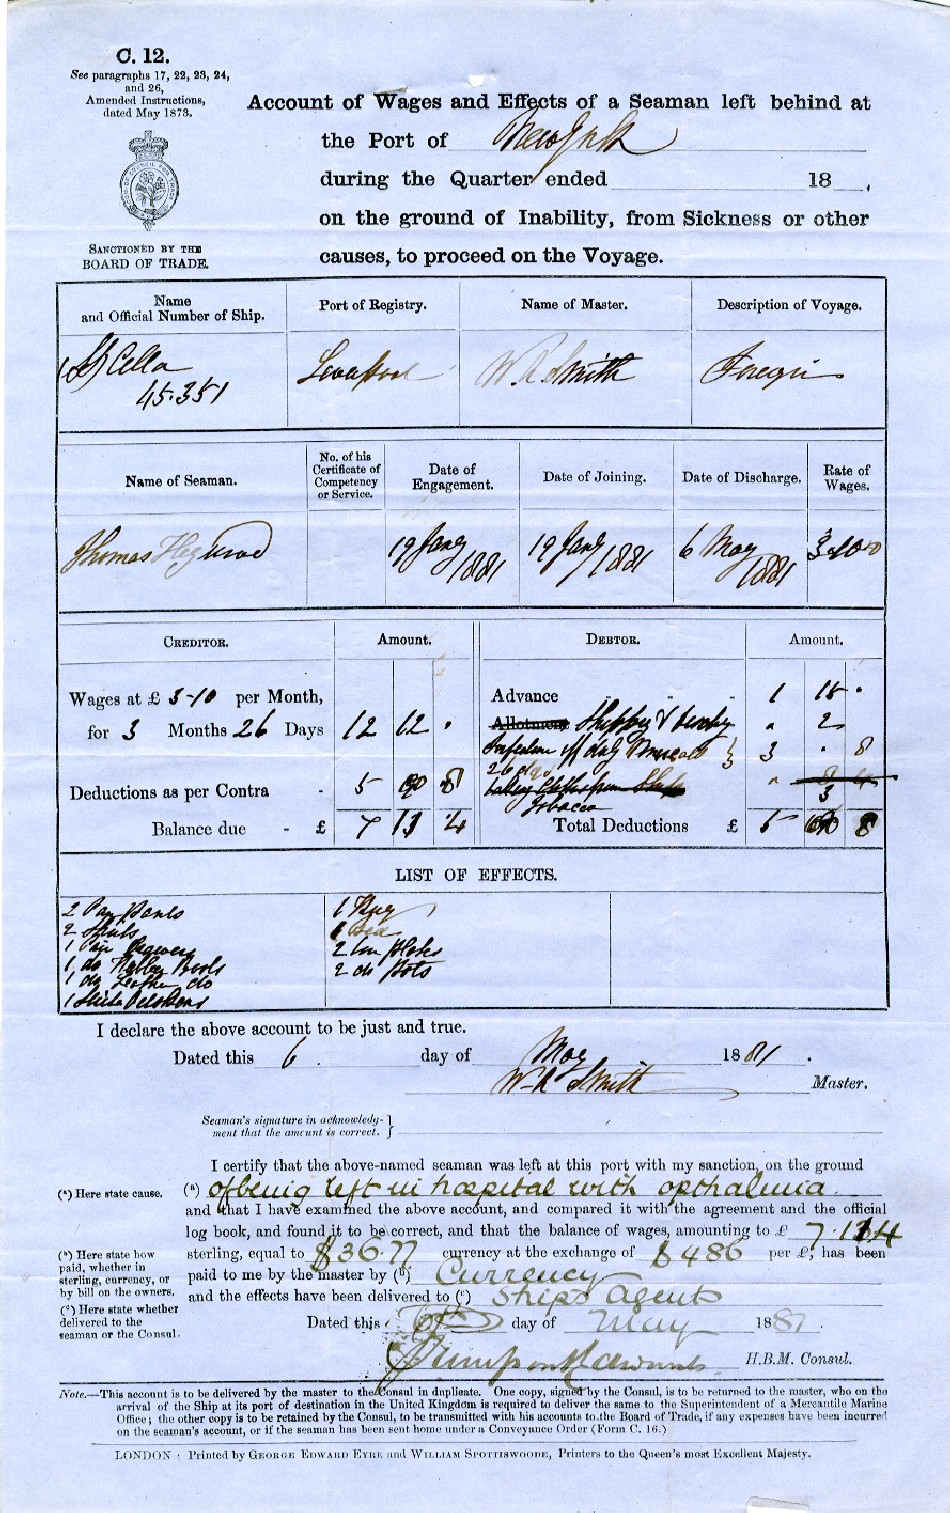 C. 12.
See paragraphs 17, 22, 23, 24,
and 26,
Amended Instructions,
dated May 1873.
SANCTIONED BY THE
BOARD OF TRADE.
Account of Wages and Effects of a Seaman left behind at
the Port of New York
during the Quarter ended 18 .
on the ground of Inability, from Sickness or other
causes, to proceed on the Voyage.
Name
and Official Number of Ship.
Port of Registry.
Name of Master.
Description of Voyage.
Cella
45.351
Liverpool
W. R Smith
Foreign
Name of Seaman.
No. of his
Certificate of
Competency
or Service.
Date of
Engagement.
Date of Joining.
Date of Discharge.
Rate of
Wages.
Thomas
19 Jany 1881
19 Jany 1881
6 May 1881
3.10.0
CREDITOR.
Amount.
DEBTOR.
Amount.
Wages at £ 3-10 per Month,
for 3 Months 26 Days
12 12 .
Deductions as per Contra -
5 8
Balance due - £
7 4
Advance - - -
1 15 .
Allotment Shipping
2
3 . 8
Tobacco
3
Total Deductions £ 5 8
LIST OF EFFECTS.
2
2 Shirts
1 Pair Drawers
1 do Rubber Boots
1 do Leather do
1
1 Rug
1 Bed
2 tin Plates
2 do Pots
I declare the above account to be just and true.
Dated this 6 . day of May 1881 .
W. R Smith Master.
Seaman's signature in acknowledg-
ment that the amount is correct. }
I certify that the above-named seaman was left at this port with my sanction, on the ground
(a) Here state cause.
(a) of being left in hospital with opthalmia
and that I have examined the above account, and compared it with the agreement and the official
log book, and found it to be correct, and that the balance of wages, amounting to £ 7.11.4
(b) Here state how
paid, whether in
sterling, currency, or
by bill on the owners.
sterling, equal to $36.77 currency at the exchange of $4 86 per £, has been
paid to me by the master by (b) Currency
and the effects have been delivered to (c) Ship's Agents
(c) Here state whether
delivered to the
seaman or the Consul.
Dated this day of May 1881.
H.B.M. Consul.
Note.—This account is to be delivered by the master to the Consul in duplicate. One copy, signed by the Consul, is to be returned to the master, who on the
arrival of the Ship at its port of destination in the United Kingdom is required to deliver the same to the Superintendent of a Mercantile Marine
Office; the other copy is to be retained by the Consul, to be transmitted with his accounts to the Board of Trade, if any expenses have been incurred
on the seaman's account, or if the seaman has been sent home under a Conveyance Order (Form C. 16.)
LONDON : Printed by GEORGE EDWARD EYRE and WILLIAM SPOTTISWOODE, Printers to the Queen's most Excellent Majesty.